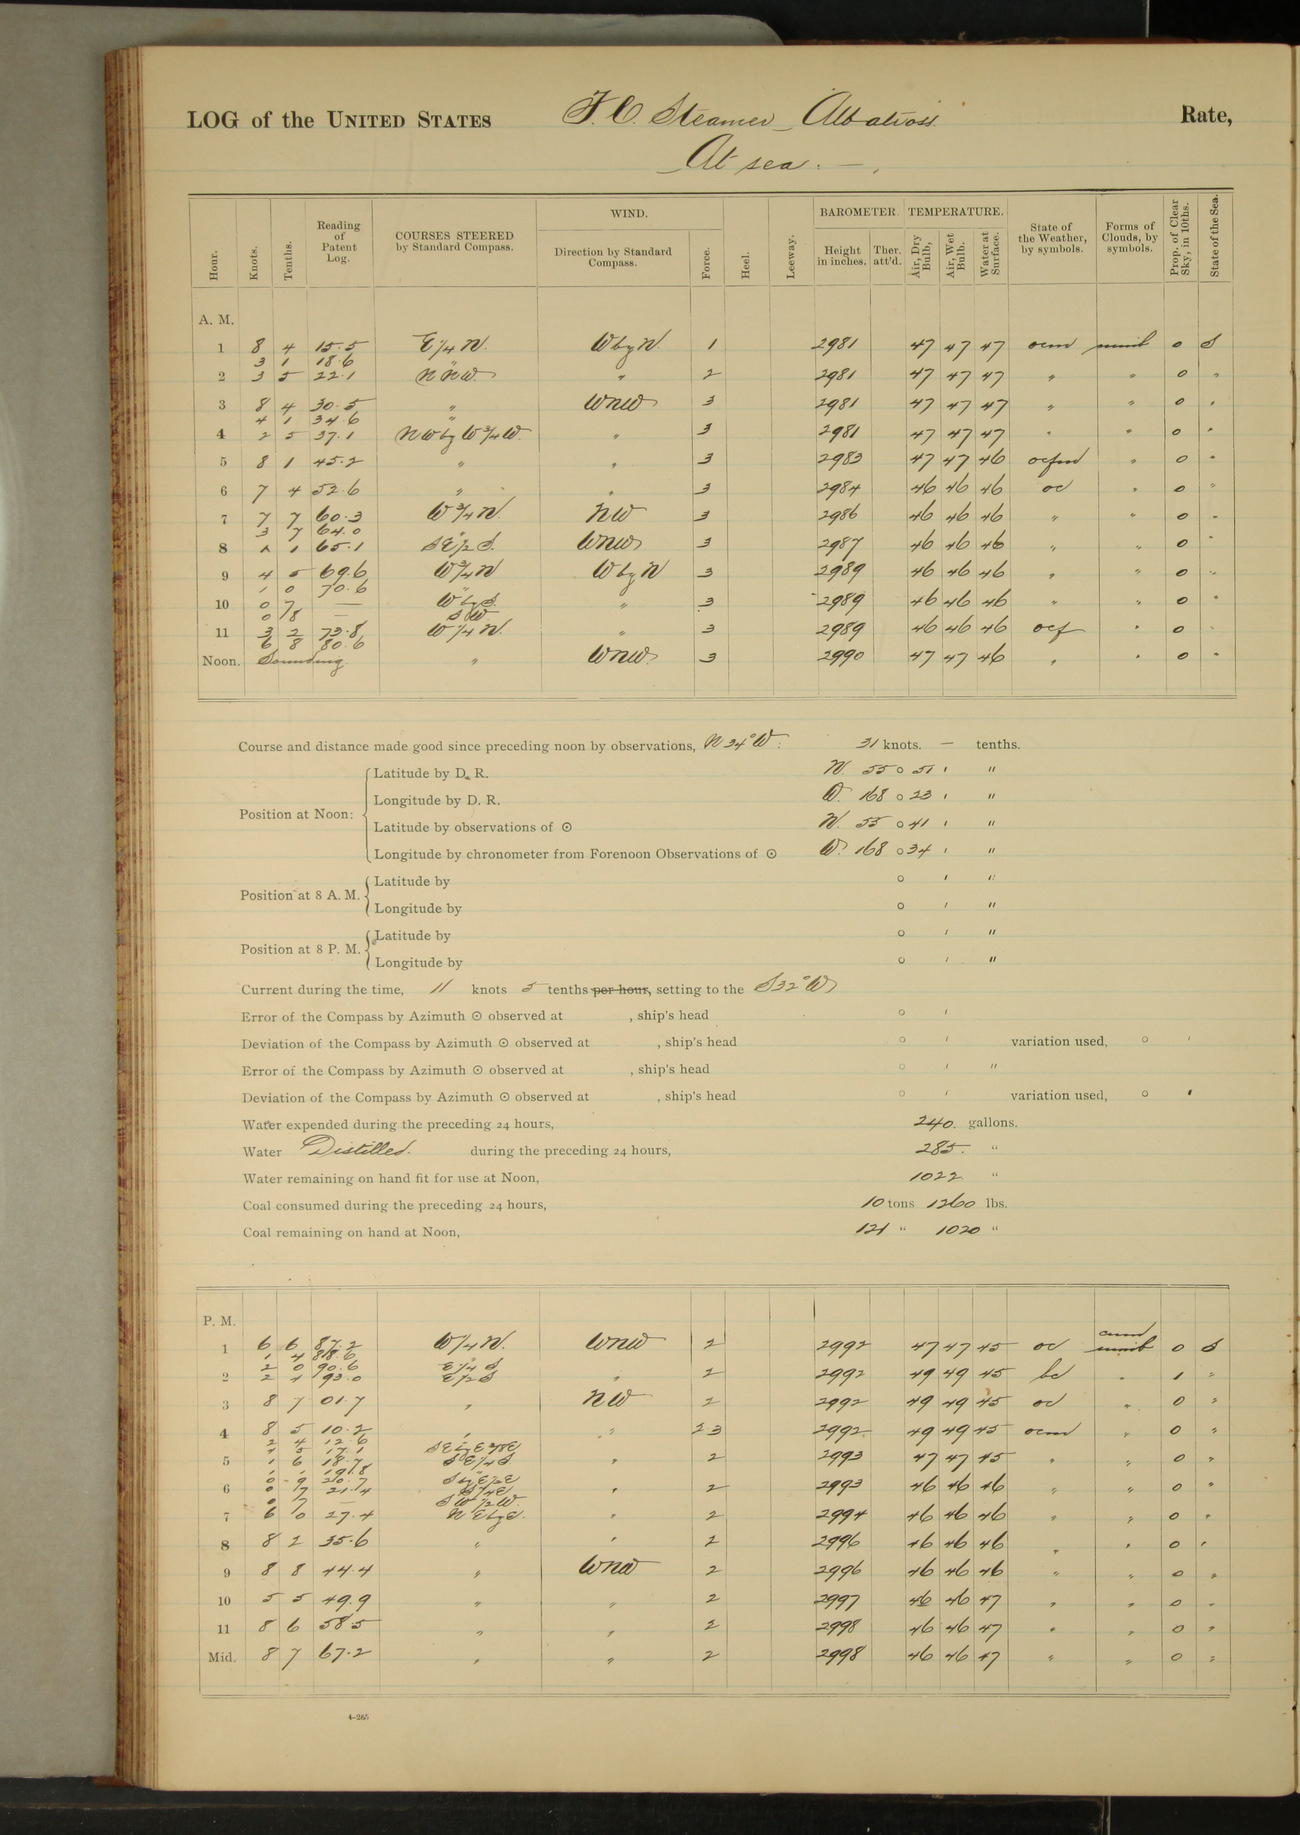 LOG of the UNITED STATES F. C. Steamer Albatross. Rate,
At sea.
Hour. Knots. Tenths. Reading of Patent Log. COURSES STEERED by Standard Compass. WIND. Direction by Standard Compass. Force. Heel. Leeway. BAROMETER. Height in inches. Ther. att'd. TEMPERATURE. Air, Dry Bulb, Air, Wet Bulb. Water at Surface. State of the Weather, by symbols. Forms of Clouds, by symbols. Prop. of Clear Sky, in 10ths. State of the Sea.
A. M.
1 8 4 15.5 E 1/4 N. W by N 1 2981 47 47 47 ocm nimb 0 S
3 1 18.6 "
2 3 5 22.1 NNW " 2 2981 47 47 47 " " 0 "
3 8 4 30.5 " WNW 3 2981 47 47 47 " " 0 "
4 1 34.6 "
4 2 5 37.1 NW by W 3/4 W. " 3 2981 47 47 47 " " 0 "
5 8 1 45.2 " " 3 2983 47 47 46 ocfm " 0 "
6 7 4 52.6 " " 3 2984 46 46 46 oc " 0 "
7 7 7 60.3 W 3/4 N. NW 3 2986 46 46 46 " " 0 "
3 7 64.0
8 1 1 65.1 SE 1/2 S. WNW 3 2987 46 46 46 " " 0 "
9 4 5 69.6 W 3/4 N W by N 3 2989 46 46 46 " " 0 "
1 0 70.6 "
10 0 7 — W by S. " 3 2989 46 46 46 " " 0 "
0 8 — SW
11 3 2 73.8 W 1/4 N. " 3 2989 46 46 46 ocf " 0 "
6 8 80.6
Noon. Sounding " WNW 3 2990 47 47 46 " " 0 "
Course and distance made good since preceding noon by observations, N 34° W: 31 knots. — tenths.
Position at Noon:
Latitude by D. R. N. 55 ° 51 ' "
Longitude by D. R. W. 168 ° 23 ' "
Latitude by observations of ⊙ N. 55 ° 41 ' "
Longitude by chronometer from Forenoon Observations of ⊙ W. 168 ° 34 ' "
Position at 8 A. M.
Latitude by ° ' "
Longitude by ° ' "
Position at 8 P. M.
Latitude by ° ' "
Longitude by ° ' "
Current during the time, 11 knots 5 tenths per hour, setting to the S 32° W
Error of the Compass by Azimuth ⊙ observed at , ship's head ° '
Deviation of the Compass by Azimuth ⊙ observed at , ship's head ° ' variation used, ° '
Error of the Compass by Azimuth ⊙ observed at , ship's head ° ' "
Deviation of the Compass by Azimuth ⊙ observed at , ship's head ° ' variation used, ° '
Water expended during the preceding 24 hours, 240. gallons.
Water Distilled. during the preceding 24 hours, 285. "
Water remaining on hand fit for use at Noon, 1022 "
Coal consumed during the preceding 24 hours, 10 tons 1260 lbs.
Coal remaining on hand at Noon, 121 " 1020 "
P. M.
1 6 6 87.2 W 1/4 N. WNW 2 2992 47 47 45 oc cum nimb 0 S
1 4 88.6
2 0 90.6 E 1/4 S
2 2 4 93.0 E 1/2 S " 2 2992 49 49 45 bc " 1 "
3 8 7 01.7 " NW 2 2992 49 49 45 oc " 0 "
4 8 5 10.2 " " 2 3 2992 49 49 45 ocm " 0 "
2 4 12.6
4 5 17.1 SE by E 3/4 E
5 1 6 18.7 SE 1/4 S " 2 2993 47 47 45 " " 0 "
1 1 19.8
0 9 20.7 S by E 1/2 E
6 0 7 21.4 S 1/4 E " 2 2993 46 46 46 " " 0 "
0 7 — SW 1/2 W.
7 6 0 27.4 NE by E. " 2 2994 46 46 46 " " 0 "
8 8 2 35.6 " " 2 2996 46 46 46 " " 0 "
9 8 8 44.4 " WNW 2 2996 46 46 46 " " 0 "
10 5 5 49.9 " " 2 2997 46 46 47 " " 0 "
11 8 6 58.5 " " 2 2998 46 46 47 " " 0 "
Mid. 8 7 67.2 " " 2 2998 46 46 47 " " 0 "
4-265